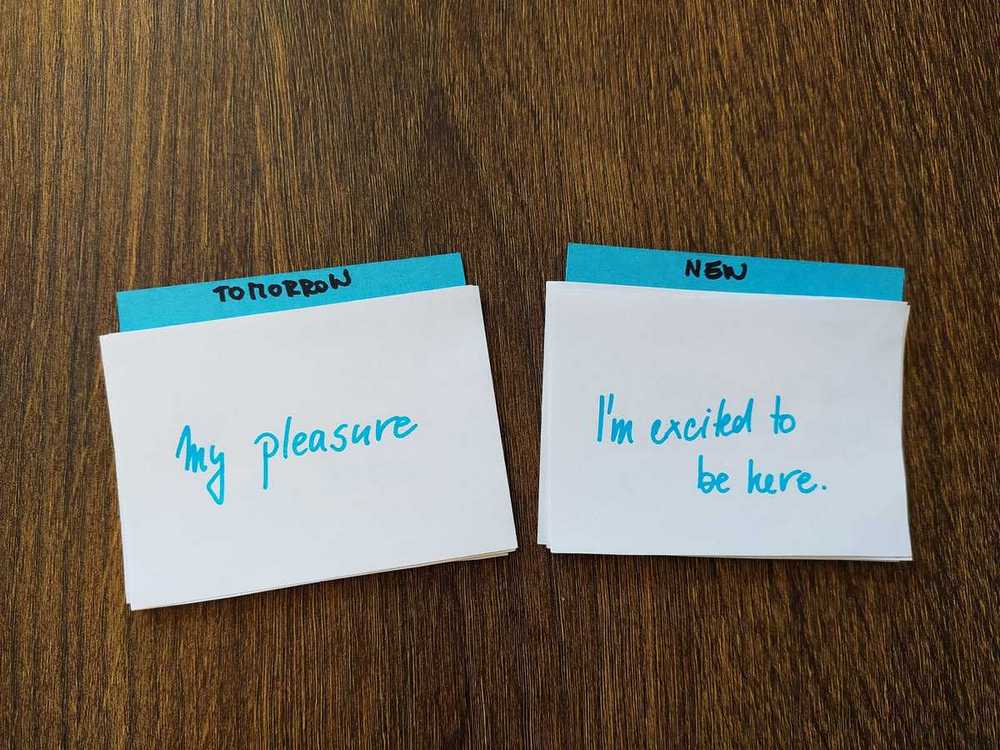 TOMORROW
My pleasure
NEW
I'm excited to
be here.